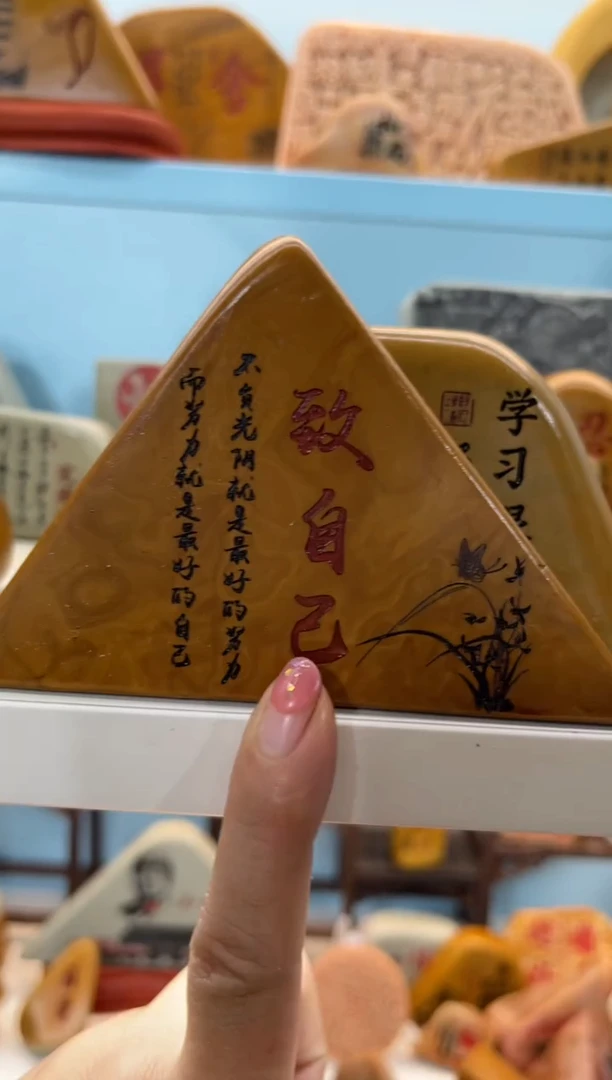 致自己
不负光阴就是最好的努力
而努力就是最好的自己
学习